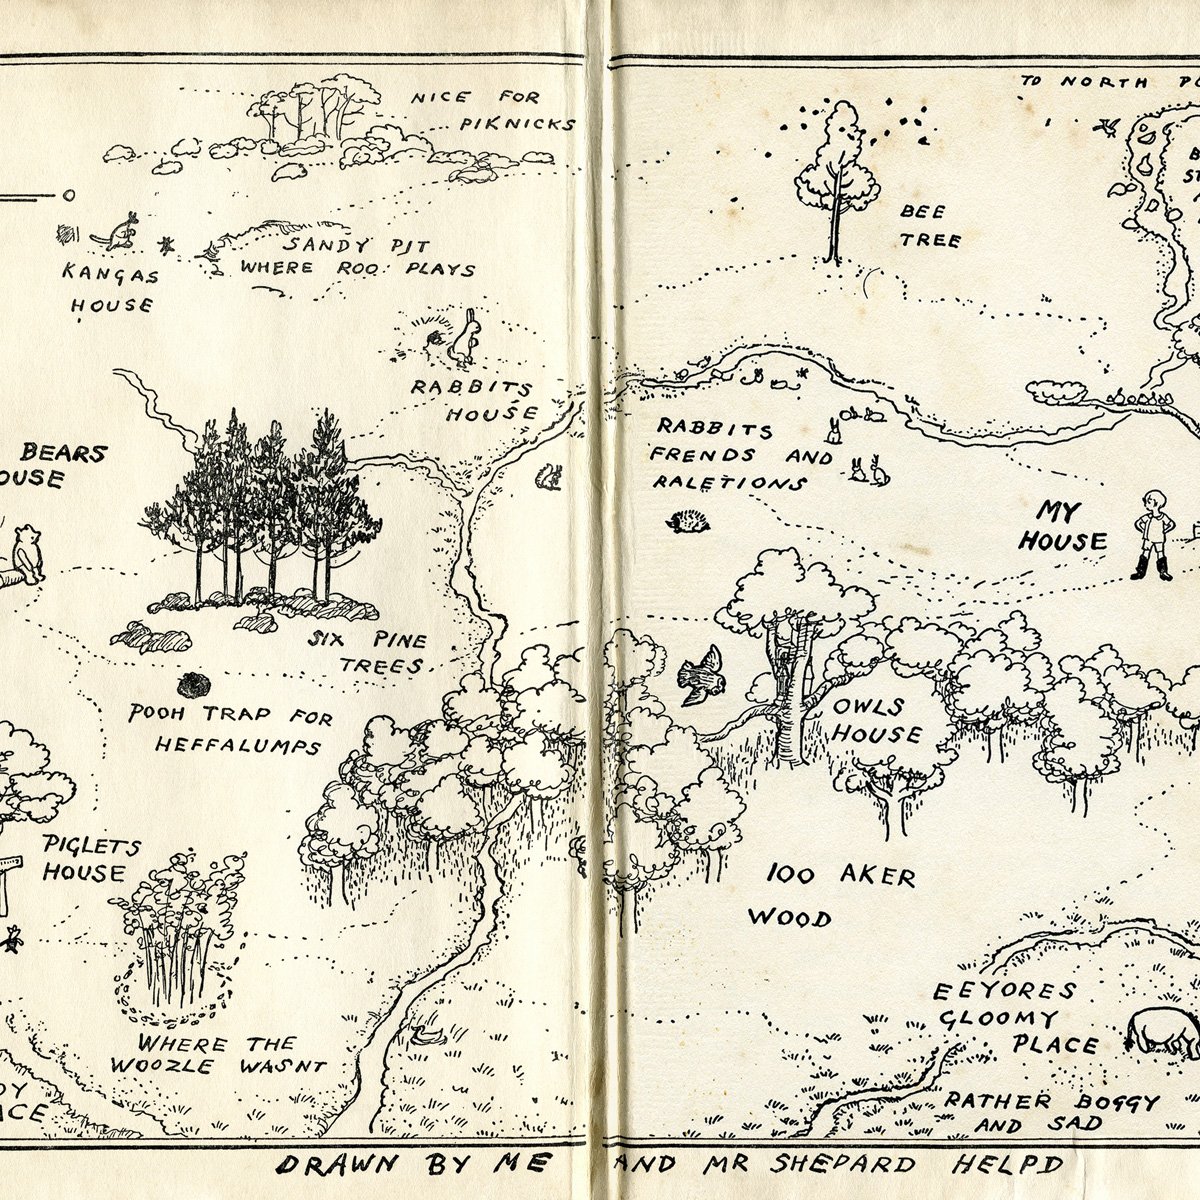 NICE FOR
PIKNICKS
TO NORTH
BEE
TREE
KANGAS
HOUSE
SANDY PIT
WHERE ROO PLAYS
RABBITS
HOUSE
RABBITS
FRENDS AND
RALETIONS
BEARS
MY
HOUSE
SIX PINE
TREES
POOH TRAP FOR
HEFFALUMPS
OWLS
HOUSE
PIGLETS
HOUSE
100 AKER
WOOD
WHERE THE
WOOZLE WASNT
EEYORES
GLOOMY
PLACE
RATHER BOGGY
AND SAD
DRAWN BY ME AND MR SHEPARD HELPD